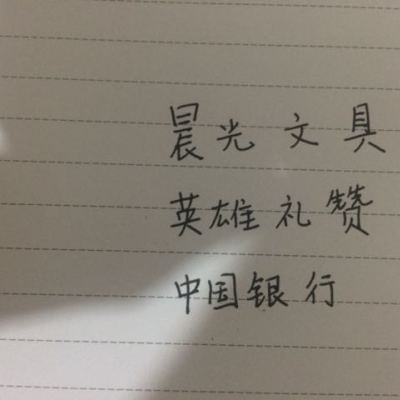 晨光文具
英雄礼赞
中国银行